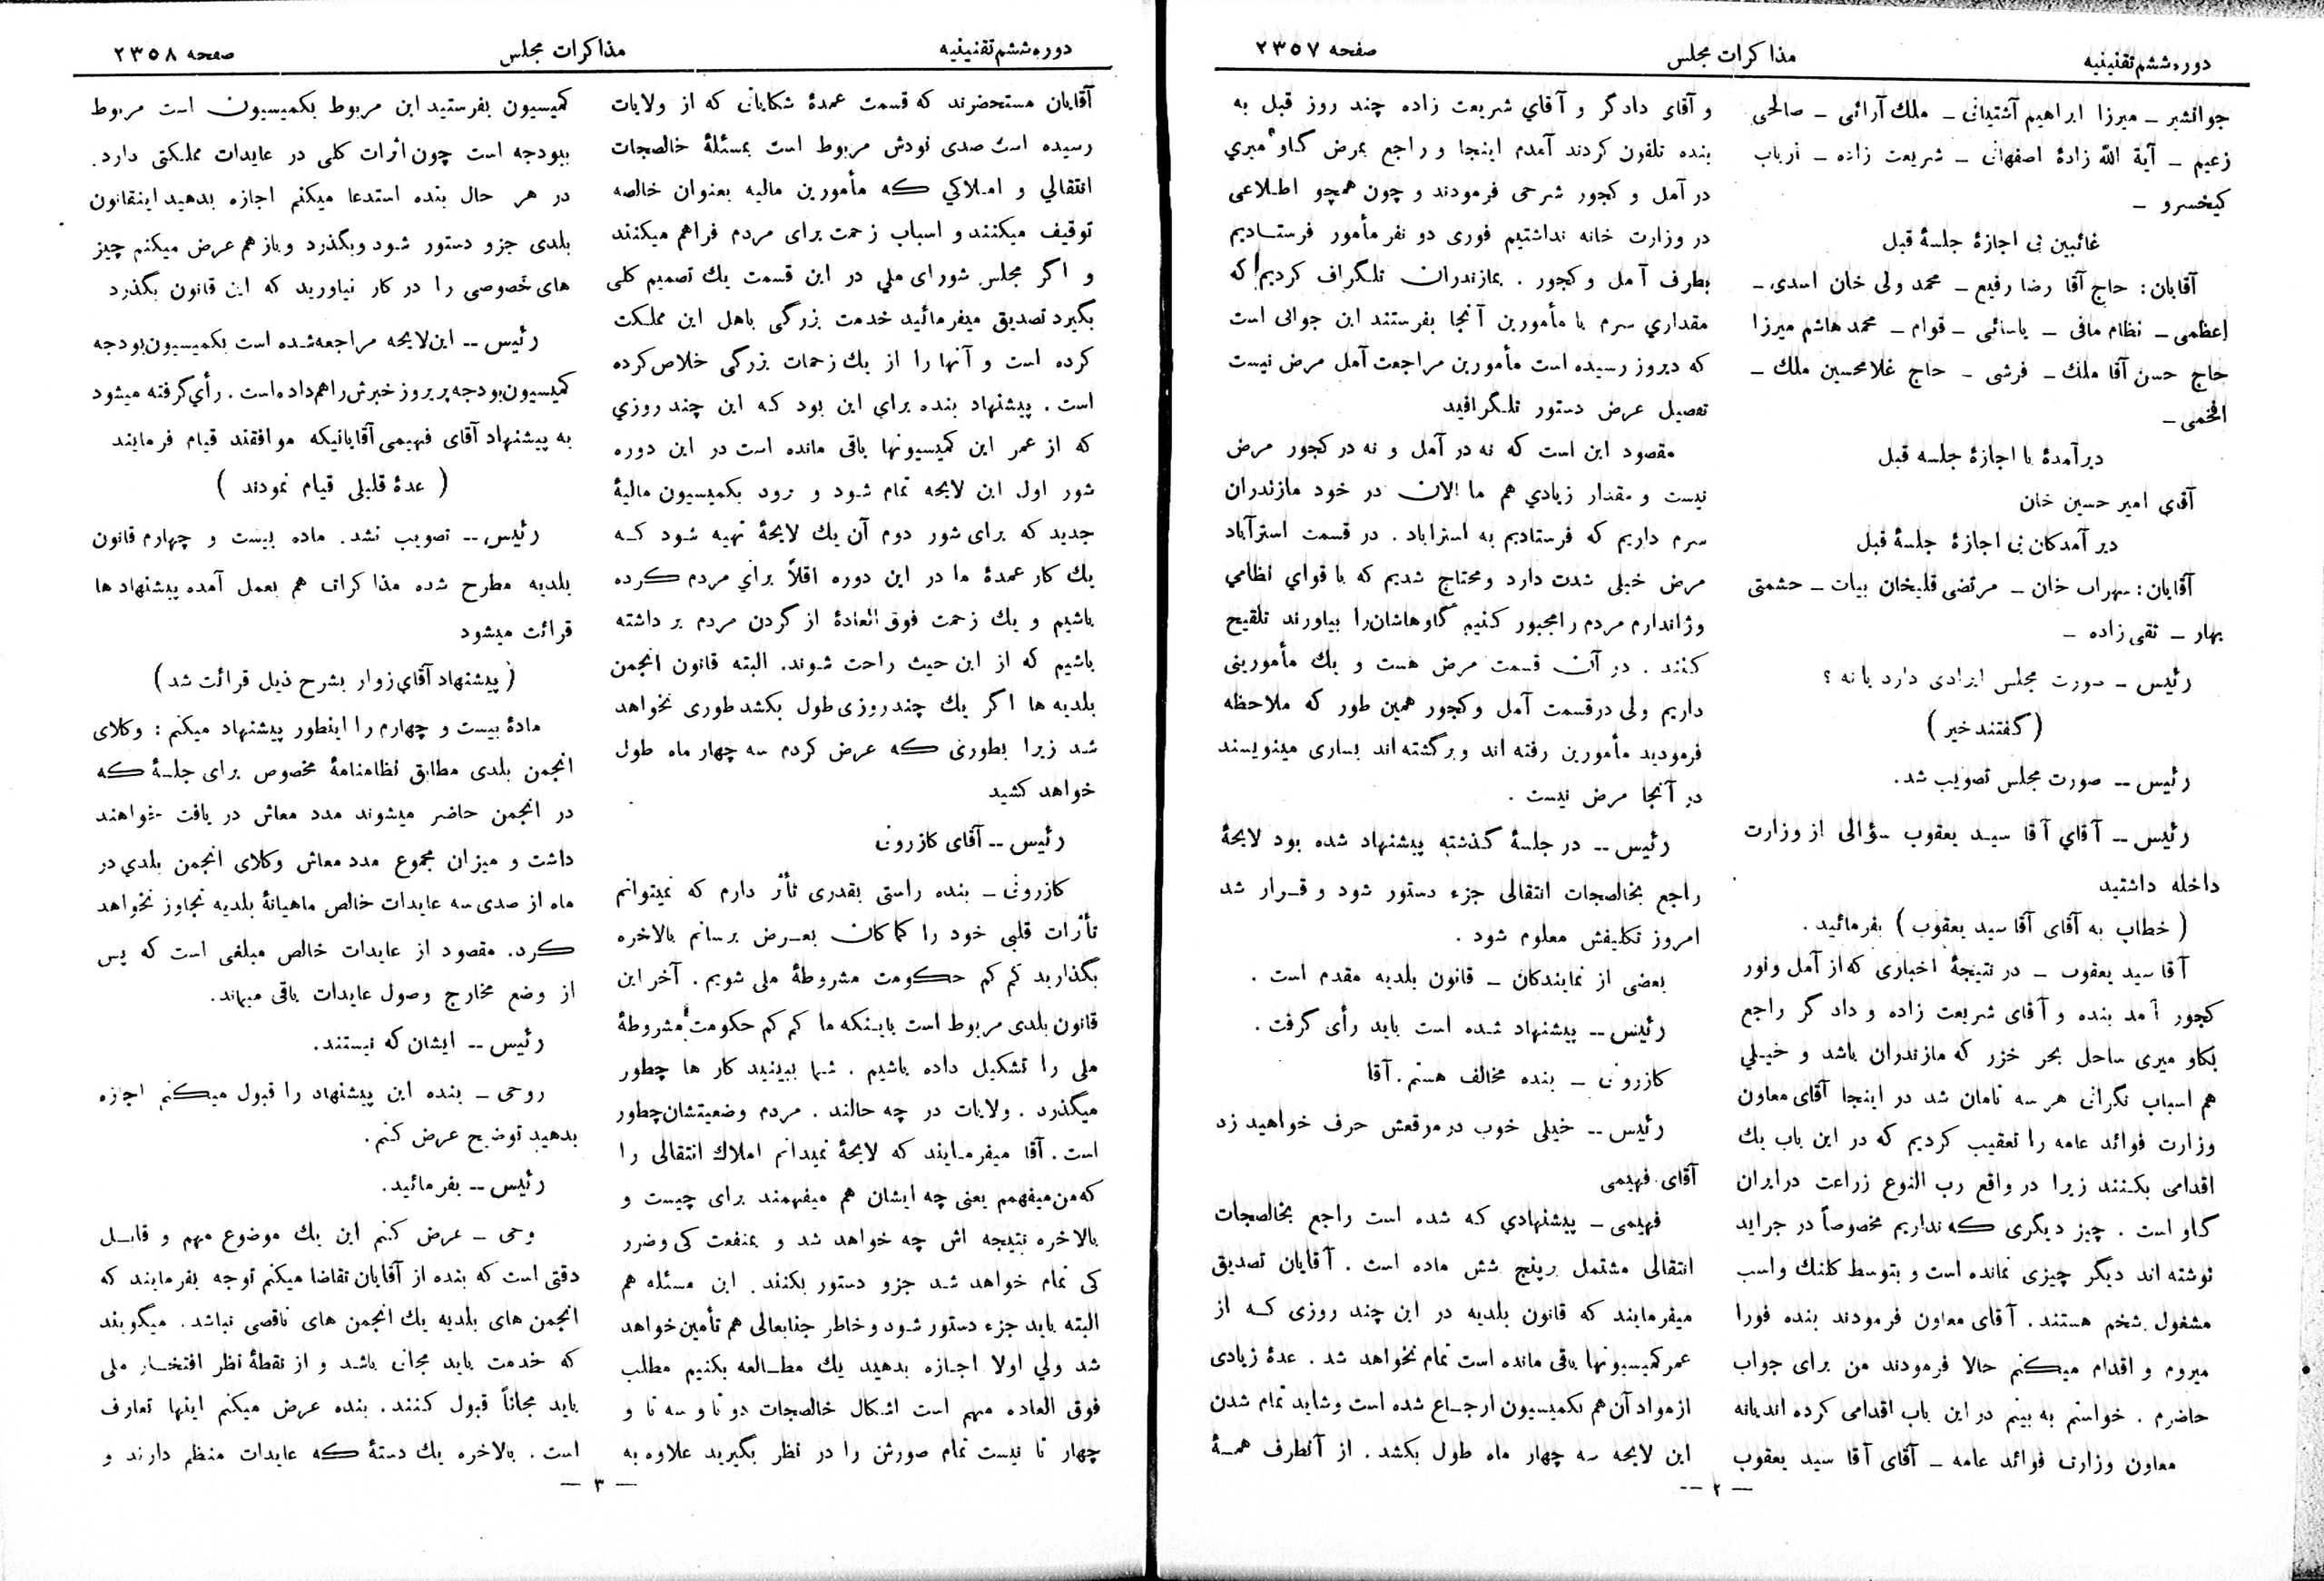 دوره ششم تقنینیه
مذاکرات مجلس
صفحه ۲۳۵۷
جوانشیر ــ میرزا ابراهیم آشتیانی ــ ملك آرائی ــ صالحی
زعیم ــ آیة الله زادۀ اصفهانی ــ شریعت زاده ــ ارباب
کیخسرو ــ
غائبین بی اجازۀ جلسۀ قبل
آقایان : حاج آقا رضا رفیع ــ محمد ولی خان اسدی ــ
اعظمی ــ نظام مافی ــ یاسائی ــ قوام ــ محمد هاشم میرزا
حاج حسن آقا ملك ــ فرشی ــ حاج غلامحسین ملك ــ
افخمی ــ
دیرآمدۀ با اجازۀ جلسه قبل
آقای امیر حسین خان
دیر آمدکان بی اجازۀ جلسۀ قبل
آقایان : سهراب خان ــ مرتضی قلیخان بیات ــ حشمتی
بهار ــ تقی زاده ــ
رئیس ــ صورت مجلس ایرادی دارد یا نه ؟
( گفتند خیر )
رئیس ــ صورت مجلس تصویب شد .
رئیس ــ آقاي آقا سید یعقوب سؤالی از وزارت
داخله داشتید
( خطاب به آقای آقا سید یعقوب ) بفرمائید .
آقا سید یعقوب ــ در نتیجۀ اخباری که از آمل و نور
کجور آمد بنده و آقای شریعت زاده و داد گر راجع
بگاو میری ساحل بحر خزر که مازندران باشد و خیلي
هم اسباب نگرانی هر سه تامان شد در اینجا آقای معاون
وزارت فوائد عامه را تعقیب کردیم که در این باب یك
اقدامی بکنند زیرا در واقع رب النوع زراعت در ایران
گاو است . چیز دیگری که نداریم مخصوصاً در جراید
نوشته اند دیگر چیزی نمانده است و بتوسط کلنك و اسب
مشغول شخم هستند . آقای معاون فرمودند بنده فورا
میروم و اقدام میکنم حالا فرمودند من برای جواب
حاضرم . خواستم به بینم در این باب اقدامی کرده اند یا نه
معاون وزارت فوائد عامه ــ آقای آقا سید یعقوب
و آقای دادگر و آقاي شریعت زاده چند روز قبل به
بنده تلفون کردند آمدم اینجا و راجع بمرض گاو میري
در آمل و کجور شرحی فرمودند و چون همچو اطلاعی
در وزارت خانه نداشتیم فوری دو نفر مأمور فرستادیم
بطرف آمل و کجور . بمازندران تلگراف کردیم که
مقداري سرم با مأمورین آنجا بفرستند این جوابی است
که دیروز رسیده است مأمورین مراجعت آمل مرض نیست
تفصیل عرض دستور تلگرافید
مقصود این است که نه در آمل و نه در کجور مرض
نیست و مقدار زیادي هم ما الان در خود مازندران
سرم داریم که فرستادیم به استراباد . در قسمت استرآباد
مرض خیلی شدت دارد و محتاج شدیم که با قواي نظامي
و ژاندارم مردم را مجبور کنیم گاوهاشان را بیاورند تلقیح
کنند . در آن قسمت مرض هست و یك مأمورینی
داریم ولی در قسمت آمل و کجور همین طور که ملاحظه
فرمودید مأمورین رفته اند و برگشته اند بساری مینویسند
در آنجا مرض نیست .
رئیس ــ در جلسۀ گذشته پیشنهاد شده بود لایحۀ
راجع بخالصجات انتقالی جزء دستور شود و قرار شد
امروز تکلیفش معلوم شود .
بعضی از نمایندکان ــ قانون بلدیه مقدم است .
رئیس ــ پیشنهاد شده است باید رأی گرفت .
کازرونی ــ بنده مخالف هستم . آقا
رئیس ــ خیلی خوب در موقعش حرف خواهید زد
آقای فهیمی
فهیمی ــ پیشنهادي که شده است راجع بخالصجات
انتقالی مشتمل برپنج شش ماده است . آقایان تصدیق
میفرمایند که قانون بلدیه در این چند روزی که از
عمر کمیسیونها باقی مانده است تمام نخواهد شد . عدۀ زیادی
از مواد آن هم بکمیسیون ارجاع شده است و شاید تمام شدن
این لایحه سه چهار ماه طول بکشد . از آنطرف همۀ
ــ ۲ ــ
دوره ششم تقنینیه
مذاکرات مجلس
صفحه ۲۳۵۸
آقایان مستحضرند که قسمت عمدۀ شکایاتی که از ولایات
رسیده است صدی نودش مربوط است بمسئلۀ خالصجات
انتقالي و املاکي که مأمورین مالیه بعنوان خالصه
توقیف میکنند و اسباب زحمت برای مردم فراهم میکنند
و اگر مجلس شورای ملي در این قسمت یك تصمیم کلی
بگیرد تصدیق میفرمائید خدمت بزرگی باهل این مملکت
کرده است و آنها را از یك زحمات بزرگی خلاص کرده
است . پیشنهاد بنده براي این بود که این چند روزي
که از عمر این کمیسیونها باقی مانده است در این دوره
شور اول این لایحه تمام شود و برود بکمیسیون مالیۀ
جدید که برای شور دوم آن یك لایحۀ تهیه شود که
یك کار عمدۀ ما در این دوره اقلاً براي مردم کرده
باشیم و یك زحمت فوق العادۀ از گردن مردم بر داشته
باشیم که از این حیث راحت شوند . البته قانون انجمن
بلدیه ها اگر یك چند روزی طول بکشد طوری نخواهد
شد زیرا بطوری که عرض کردم سه چهار ماه طول
خواهد کشید
رئیس ــ آقای کازرونی
کازرونی ــ بنده راستی بقدری تأثر دارم که نمیتوانم
تأثرات قلبی خود را کماکان بعرض برسانم بالاخره
بگذارید کم کم حکومت مشروطۀ ملی شویم . آخر این
قانون بلدی مربوط است باینکه ما کم کم حکومت مشروطۀ
ملی را تشکیل داده باشیم . شما ببینید کار ها چطور
میگذرد . ولایات در چه حالند . مردم وضعیتشان چطور
است . آقا میفرمایند که لایحۀ نمیدانم املاك انتقالی را
که من میفهمم یعنی چه ایشان هم میفهمند برای چیست و
بالاخره نتیجه اش چه خواهد شد و بمنفعت کی و ضرر
کی تمام خواهد شد جزو دستور بکنند . این مسئله هم
البته باید جزء دستور شود و خاطر جنابعالی هم تأمین خواهد
شد ولي اولا اجازه بدهید یك مطالعه بکنیم مطلب
فوق العاده مهم است اشکال خالصجات دو تا و سه تا و
چهار تا نیست تمام صورش را در نظر بگیرید علاوه به
کمیسیون بفرستید این مربوط بکمیسیون است مربوط
ببودجه است چون اثرات کلی در عایدات مملکتی دارد .
در هر حال بنده استدعا میکنم اجازه بدهید اینقانون
بلدی جزو دستور شود و بگذرد و باز هم عرض میکنم چیز
های خصوصی را در کار نیاورید که این قانون بگذرد
رئیس ــ این لایحه مراجعه شده است بکمیسیون بودجه
کمیسیون بودجه پریروز خبرش را هم داده است . رأی گرفته میشود
به پیشنهاد آقای فهیمی آقایانیکه موافقند قیام فرمایند
( عدۀ قلیلی قیام نمودند )
رئیس ــ تصویب نشد . ماده بیست و چهارم قانون
بلدیه مطرح شده مذاکرات هم بعمل آمده پیشنهاد ها
قرائت میشود
( پیشنهاد آقاي زوار بشرح ذیل قرائت شد )
مادۀ بیست و چهارم را اینطور پیشنهاد میکنم : وکلای
انجمن بلدی مطابق نظامنامۀ مخصوص برای جلسۀ که
در انجمن حاضر میشوند مدد معاش دریافت خواهند
داشت و میزان مجموع مدد معاش وکلای انجمن بلدي در
ماه از صدی سه عایدات خالص ماهیانۀ بلدیه تجاوز نخواهد
کرد . مقصود از عایدات خالص مبلغی است که پس
از وضع مخارج وصول عایدات باقی میماند .
رئیس ــ ایشان که نیستند .
روحی ــ بنده این پیشنهاد را قبول میکنم اجازه
بدهید توضیح عرض کنم .
رئیس ــ بفرمائید .
وحی ــ عرض کنم این یك موضوع مهم و قابل
دقتی است که بنده از آقایان تقاضا میکنم توجه بفرمایند که
انجمن های بلدیه یك انجمن های ناقصی نباشد . میگویند
که خدمت باید مجانی باشد و از نقطۀ نظر افتخار ملی
باید مجاناً قبول کنند . بنده عرض میکنم اینها تعارف
است . بالاخره یك دستۀ که عایدات منظم دارند و
ــ ۳ ــ